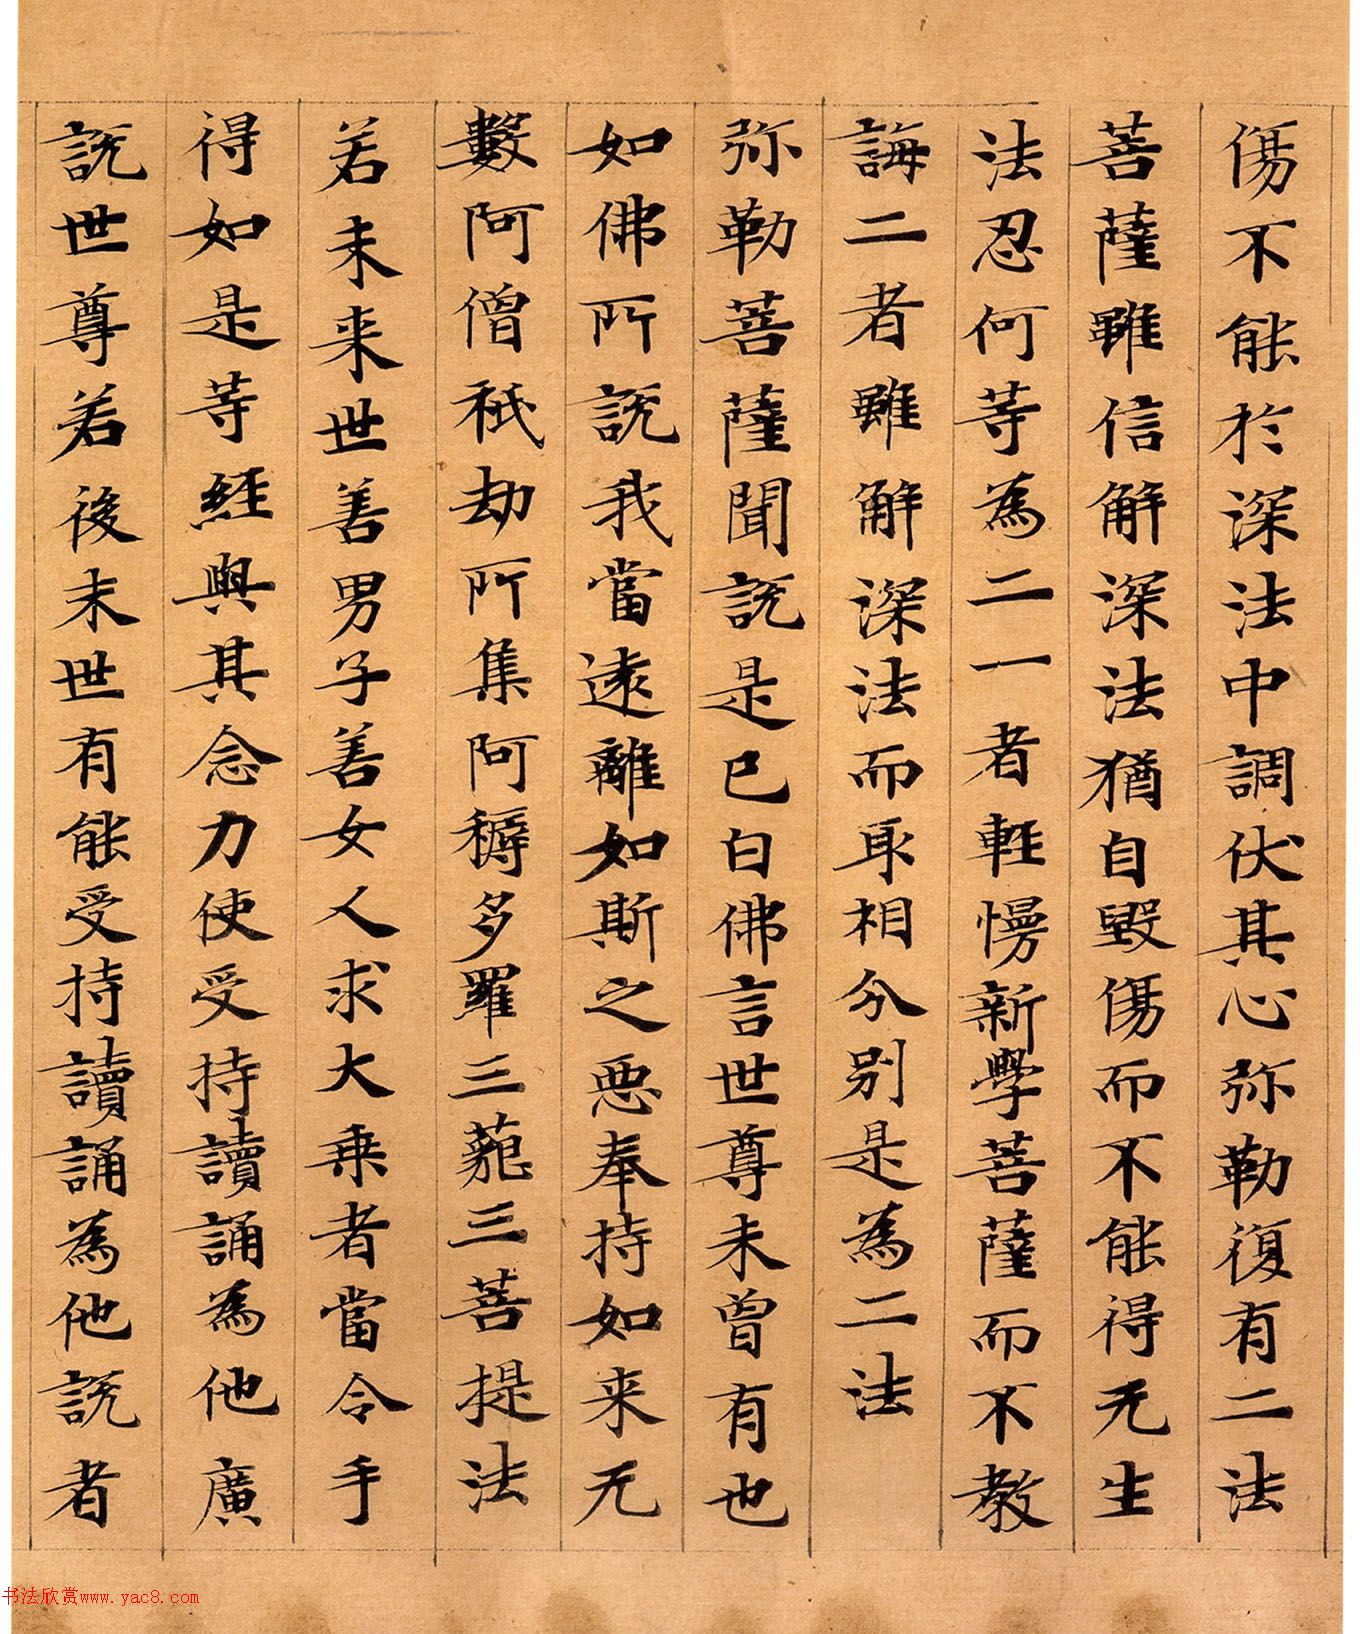 傷不能於深法中調伏其心弥勒復有二法
菩薩雖信解深法猶自毀傷而不能得无生
法忍何等為二一者輕慢新學菩薩而不教
誨二者雖解深法而取相分別是為二法
弥勒菩薩聞說是已白佛言世尊未曾有也
如佛所說我當遠離如斯之惡奉持如来无
數阿僧祇劫所集阿耨多羅三藐三菩提法
若未来世善男子善女人求大乘者當令手
得如是等經與其念力使受持讀誦為他廣
說世尊若後末世有能受持讀誦為他說者
书法欣赏www.yac8.com